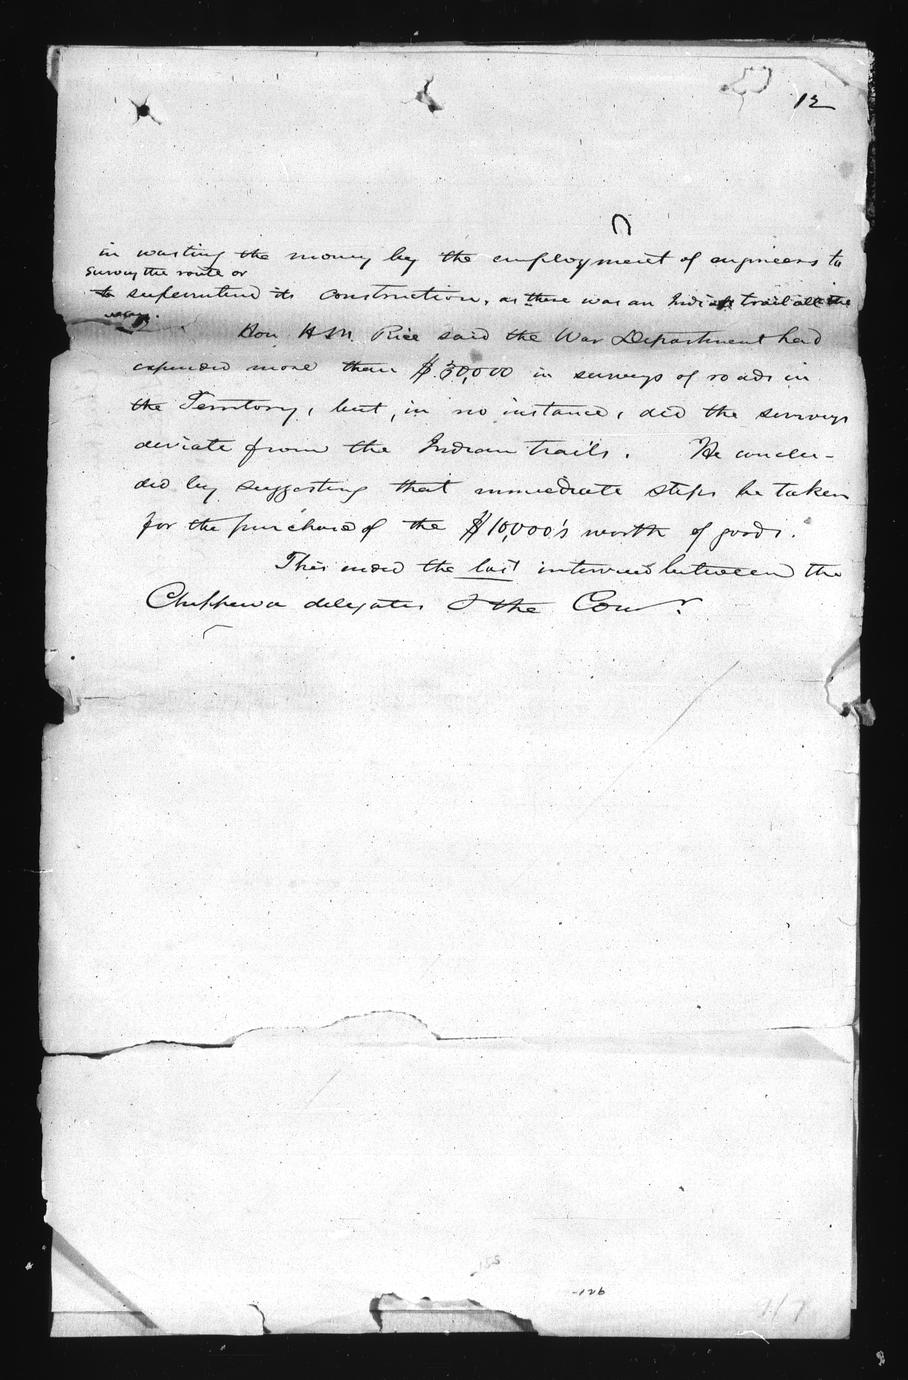 12
in wasting the money by the employment of engineers to
survey the route or
to superintend its construction, as there was an Indian trail all the
way.
Hon H M. Rice said the War Department had
expended more than $30,000 in surveys of roads in
the Territory, but, in no instance, did the surveys
deviate from the Indian trails. He conclu-
ded by suggesting that immediate steps be taken
for the purchase of the $10,000's worth of goods.
This ended the last interview between the
Chippewa delegates & the Comr.
126
117